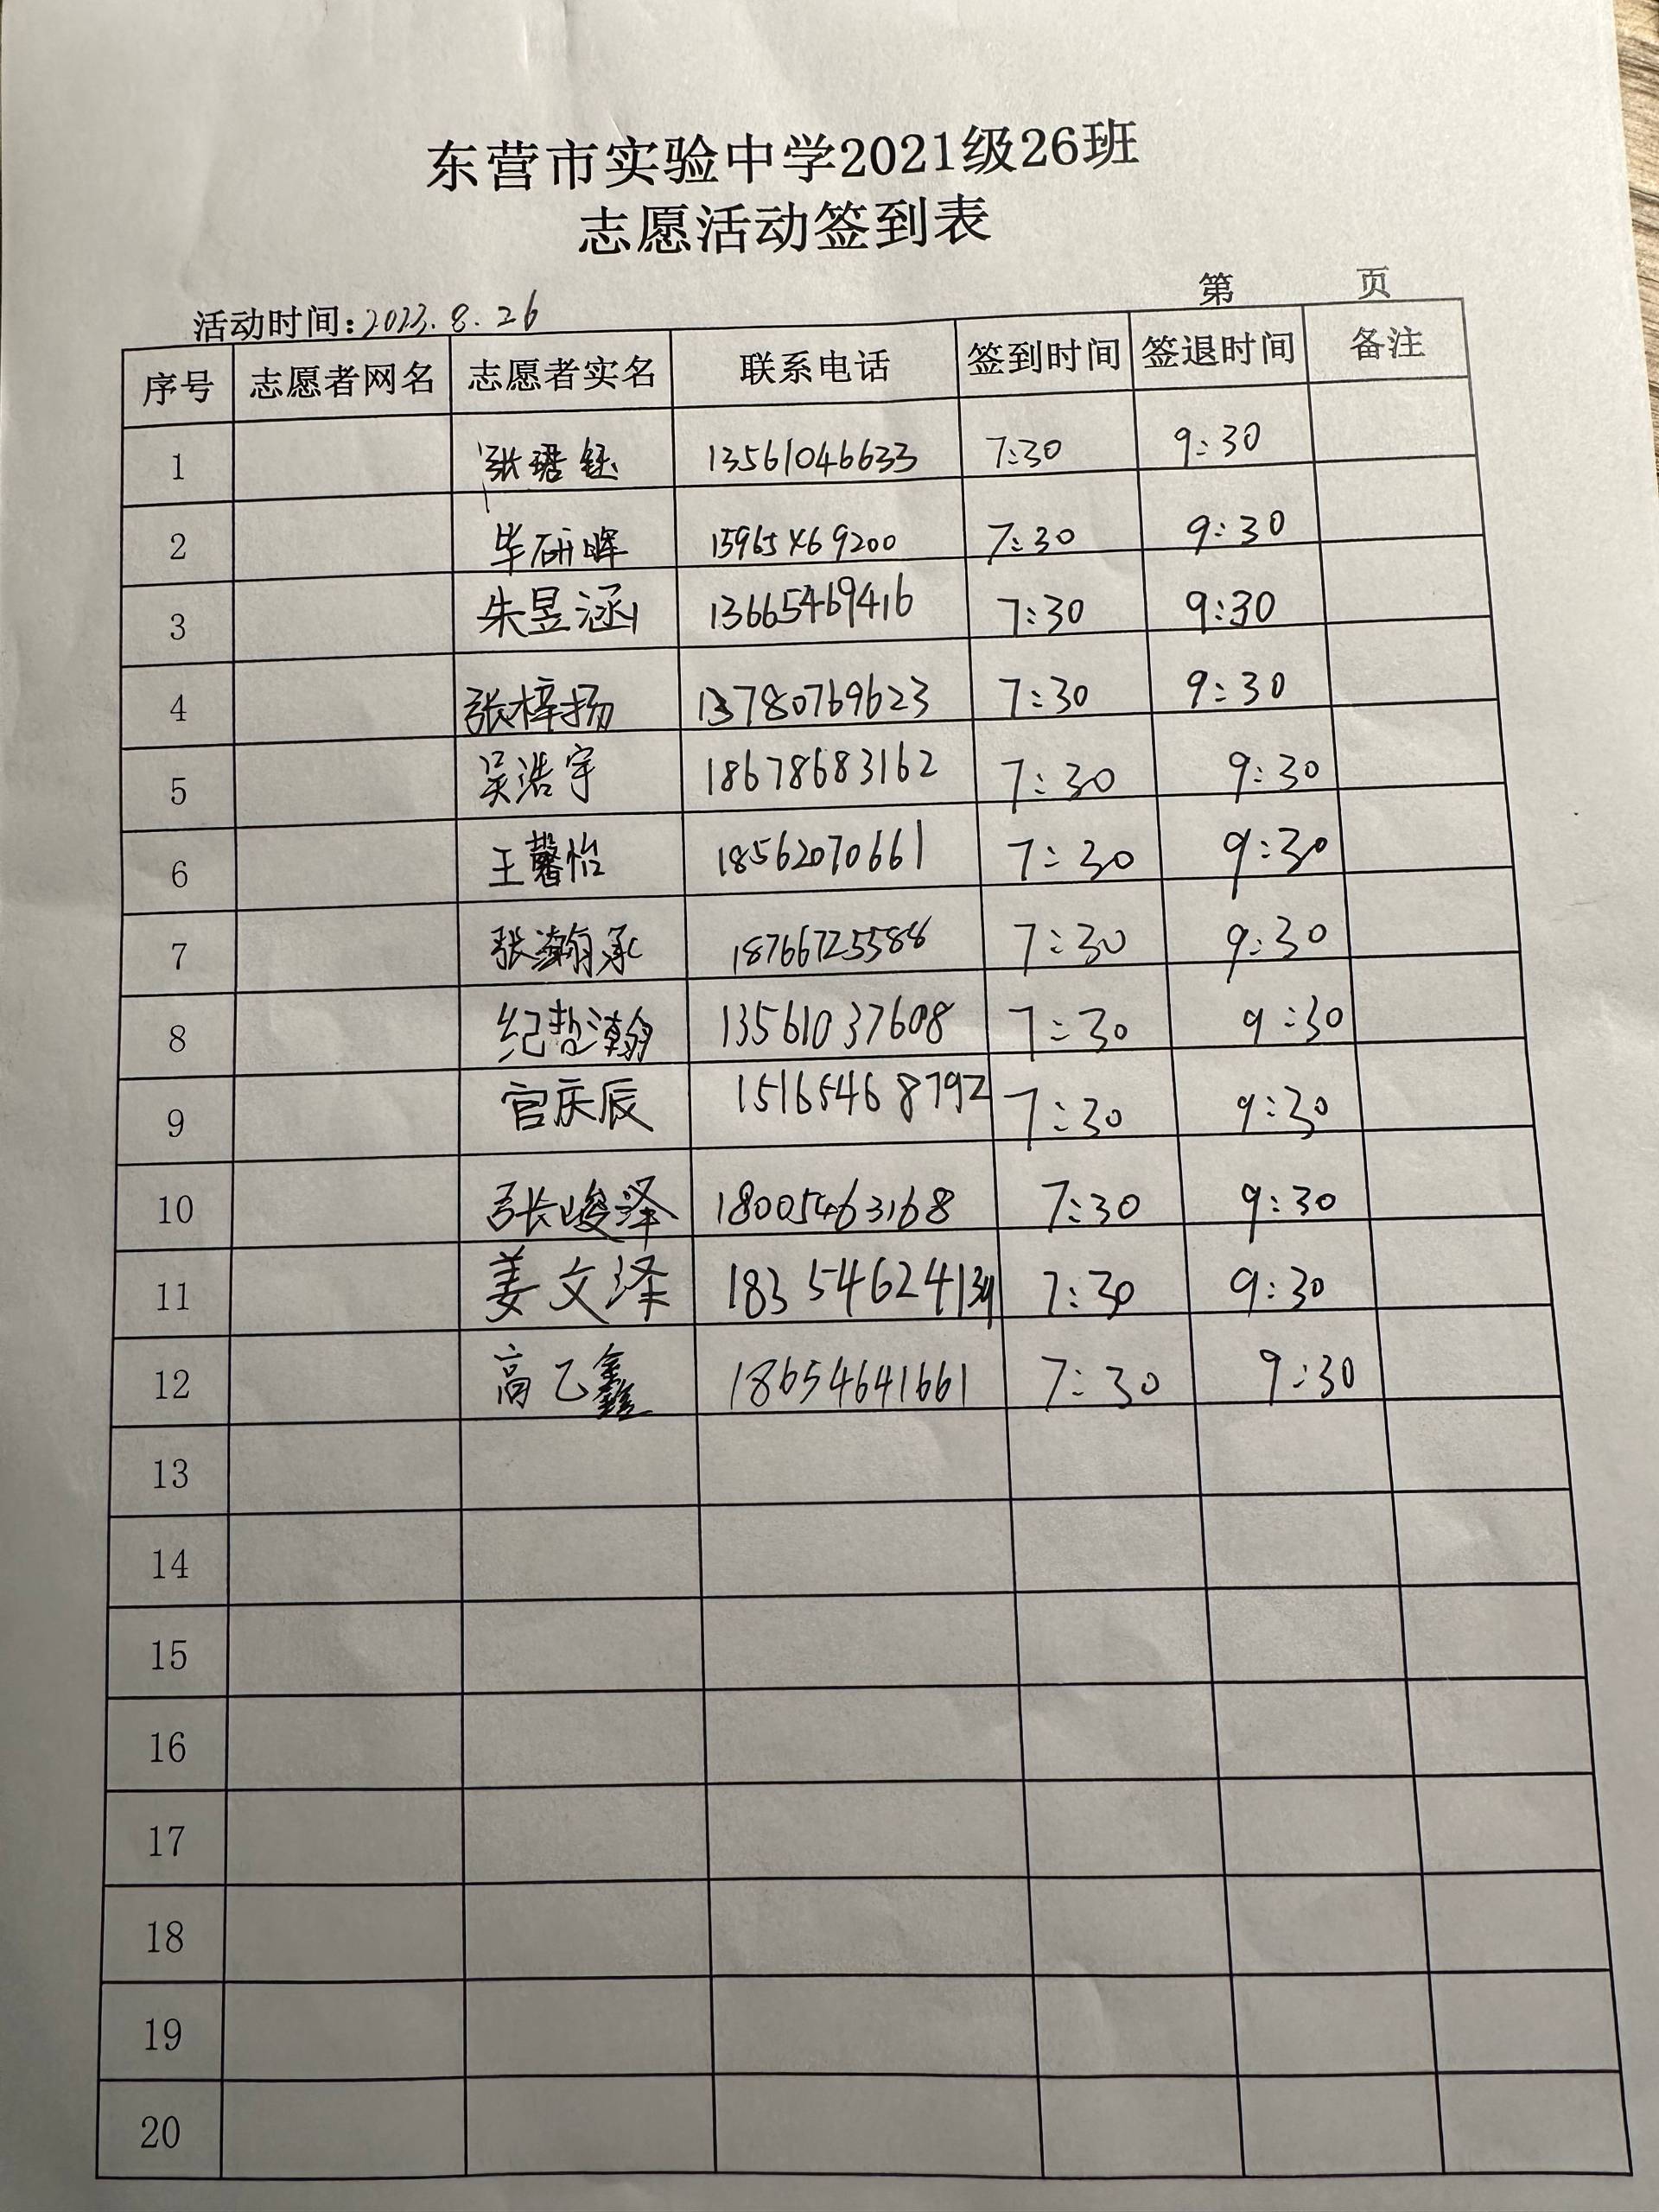 东营市实验中学2021级26班
志愿活动签到表
第 页
活动时间:2023.8.26
序号 志愿者网名 志愿者实名 联系电话 签到时间 签退时间 备注
1 张珺钰 13561046633 7:30 9:30
2 毕研晖 15965469200 7:30 9:30
3 朱昱涵 13665469416 7:30 9:30
4 张梓扬 13780769623 7:30 9:30
5 吴浩宇 18678683162 7:30 9:30
6 王馨怡 18562070661 7:30 9:30
7 张瀚承 18766725588 7:30 9:30
8 纪哲瀚 13561037608 7:30 9:30
9 宫庆辰 15165468792 7:30 9:30
10 张峻泽 18005463168 7:30 9:30
11 姜文泽 7:30 9:30
12 高乙鑫 18654641661 7:30 9:30
13
14
15
16
17
18
19
20